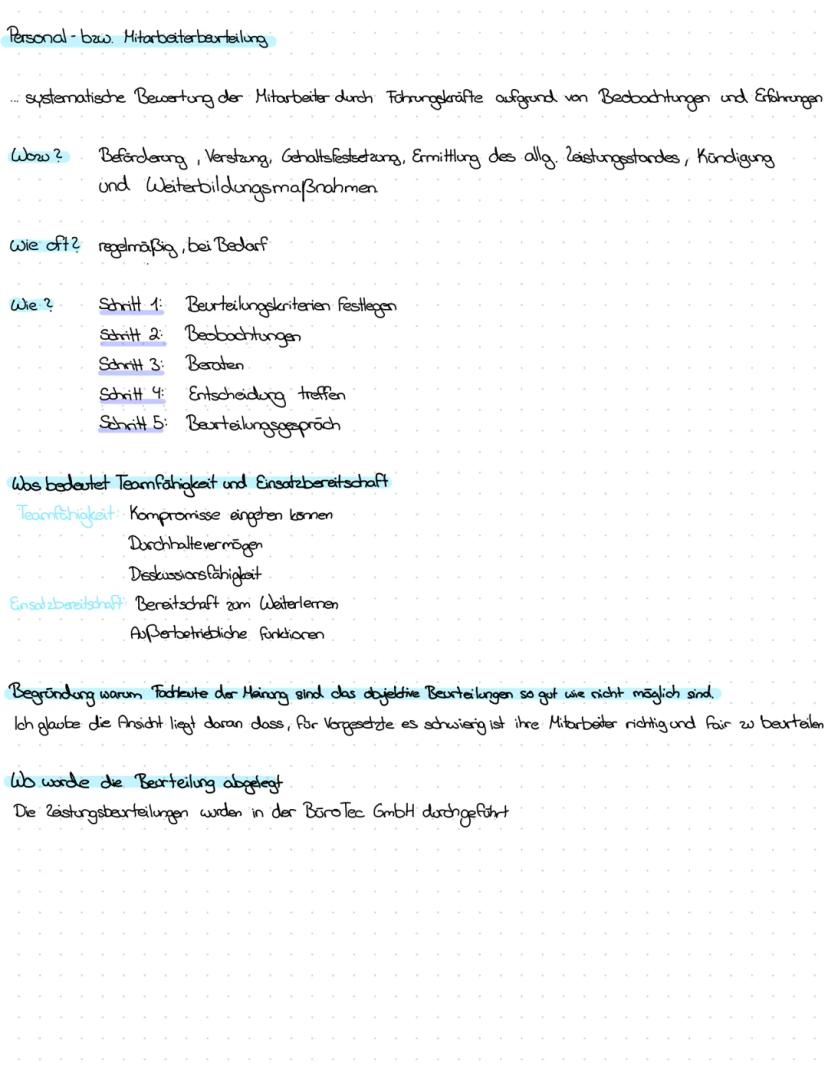 Personal- bzw. Mitarbeiterbeurteilung
... systematische Bewertung der Mitarbeiter durch Führungskräfte aufgrund von Beobachtungen und Erfahrungen
Wozu? Beförderung, Verstzung, Gehaltsfestsetzung, Ermittlung des allg. Leistungsstandes, Kündigung
und Weiterbildungsmaßnahmen
Wie oft? regelmäßig, bei Bedarf
Wie? Schritt 1: Beurteilungskriterien festlegen
Schritt 2: Beobachtungen
Schritt 3: Beraten
Schritt 4: Entscheidung treffen
Schritt 5: Beurteilungsgespräch
Was bedeutet Teamfähigkeit und Einsatzbereitschaft
Teamfähigkeit: Kompromisse eingehen können
Durchhaltevermögen
Disskussionsfähigkeit
Einsatzbereitschaft: Bereitschaft zum Weiterlernen
Außerbetriebliche Funktionen
Begründung warum Fachleute der Meinung sind das objektive Beurteilungen so gut wie nicht möglich sind.
Ich glaube die Ansicht liegt daran dass, für Vorgesetzte es schwierig ist ihre Mitarbeiter richtig und fair zu beurteilen
Wo wurde die Beurteilung abgelegt
Die Leistungsbeurteilungen wurden in der BüroTec GmbH durchgeführt